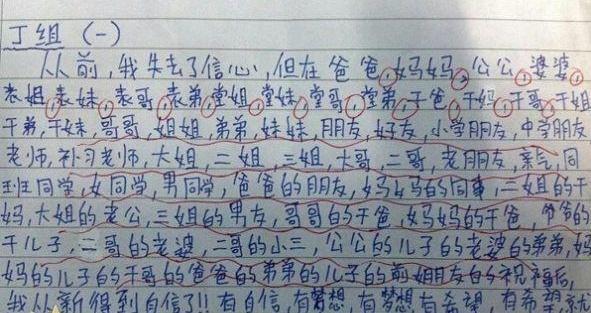 丁组 (一)
从前,我失去了信心,但在爸爸,妈妈,公公,婆婆,
表姐,表妹,表哥,表弟,堂姐,堂妹,堂哥,堂弟,干爸,干妈,干哥,干姐
干弟,干妹,哥哥,姐姐,弟弟,妹妹,朋友,好友,小学朋友,中学朋友,
老师,补习老师,大姐,二姐,三姐,大哥,二哥,老朋友,亲气,同
班同学,女同学,男同学,爸爸的朋友,妈妈的同事,二姐的干
妈,大姐的老公,三姐的男友,哥哥的干爸,妈妈的干爸,爷爷的
干儿子,二哥的老婆,二哥的小三,公公的儿子的老婆的弟弟,妈
妈的儿子的干哥的爸爸的弟弟的儿子的前姐朋友的祝福后,
我从新得到自信了!!有自信,有梦想,有梦想有希望,有希望,就